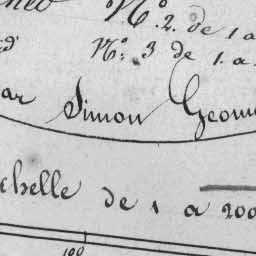 No. 2. de 1 a
No. 3 de 1. a
ar Simon Geom
chelle de 1 a 200
100